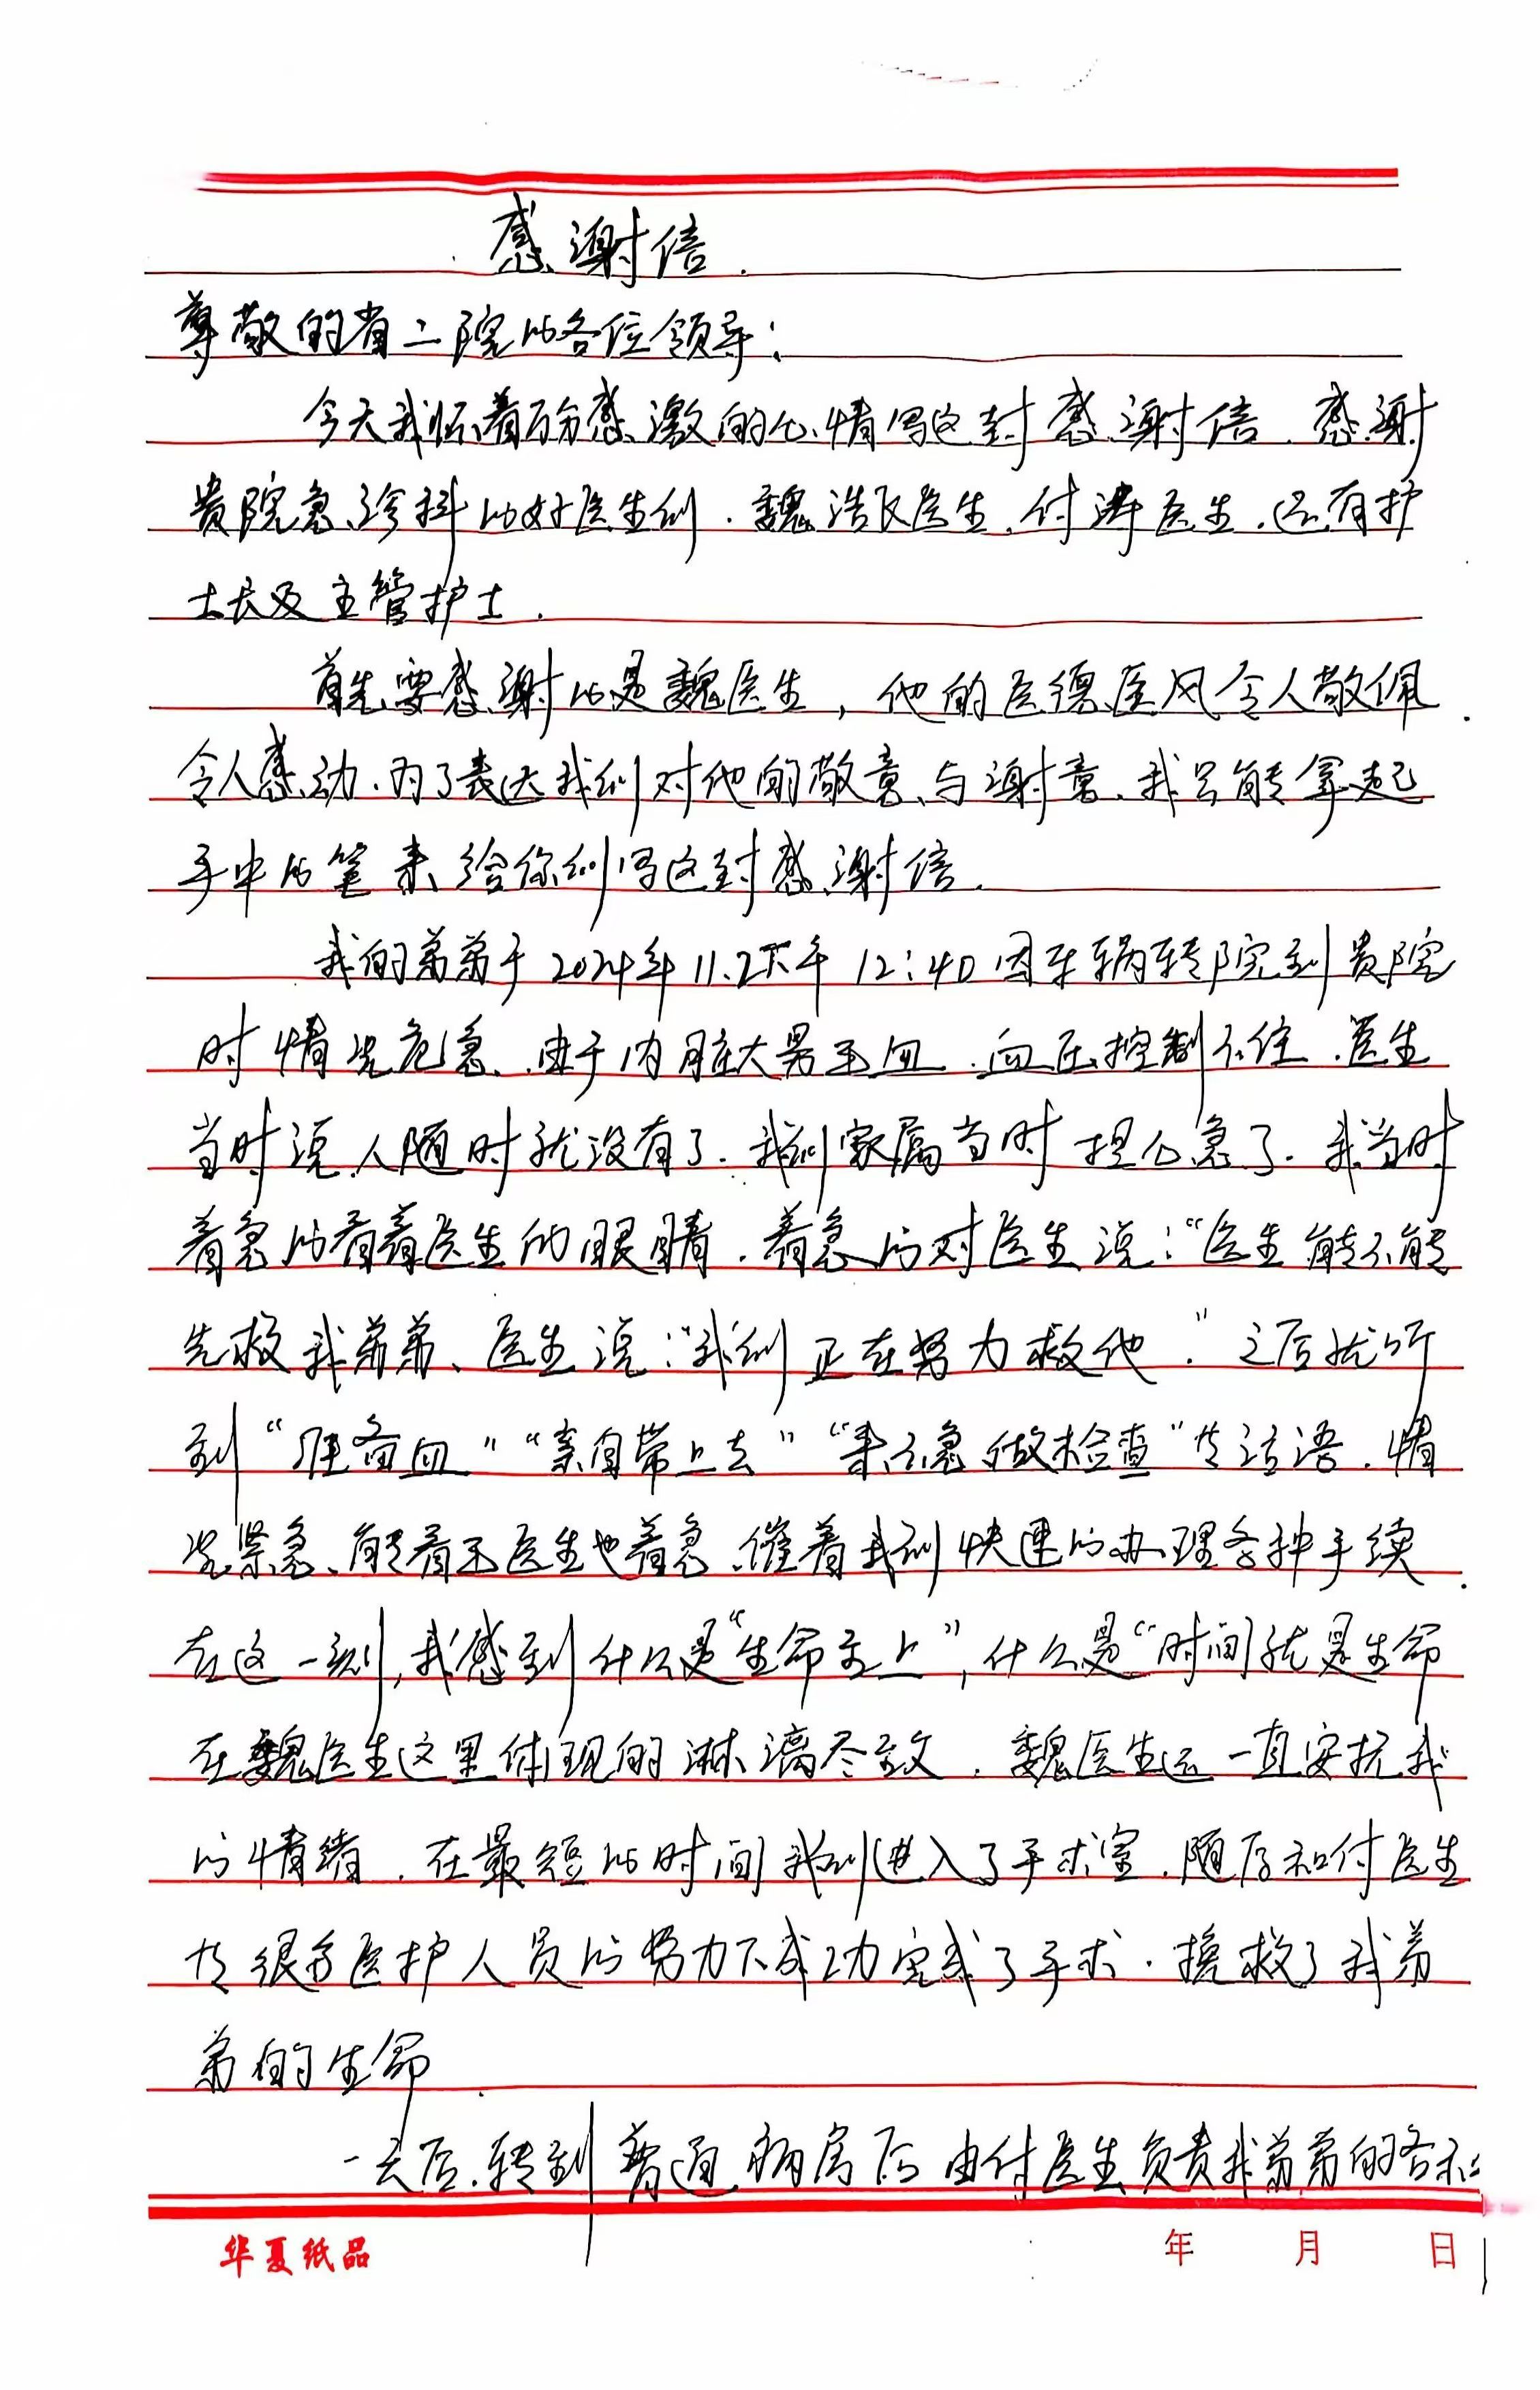 感谢信.
尊敬的省二院的各位领导：
今天我怀着万分感激的心情写这封感谢信.感谢
贵院急诊科的好医生们.魏浩 医生,付涛医生.还有护
士长及主管护士.
首先要感谢的是魏医生，他的医德医风令人敬佩.
令人感动.为了表达我们对他的敬意与谢意.我只能拿起
手中的笔来给你们写这封感谢信.
我的弟弟于2024年11.2下午12:40因车祸转院到贵院
时情况危急.由于内脏大男出血.血压控制不住.医生
当时说人随时就没有了.我们家属当时担心急了.我当时
着急的看着医生的眼睛.着急的对医生说：“医生能不能
先救我弟弟、医生说：“我们正在努力救他.”之后就听
到“准备血”“亲自带上去”“来不急做检查”等话语.情
况紧急、能看出医生也着急.催着我们快速的办理各种手续.
在这一刻,我感到什么是“生命至上”,什么是“时间就是生命
在魏医生这里体现的淋漓尽致.魏医生还一直安抚我
的情绪.在最短的时间我们进入了手术室.随后和付医生
等很多医护人员的努力下成功完成了手术.挽救了我弟
弟的生命.
一天后.转到普通病房后由付医生负责我弟弟的各
华夏纸品
年 月 日